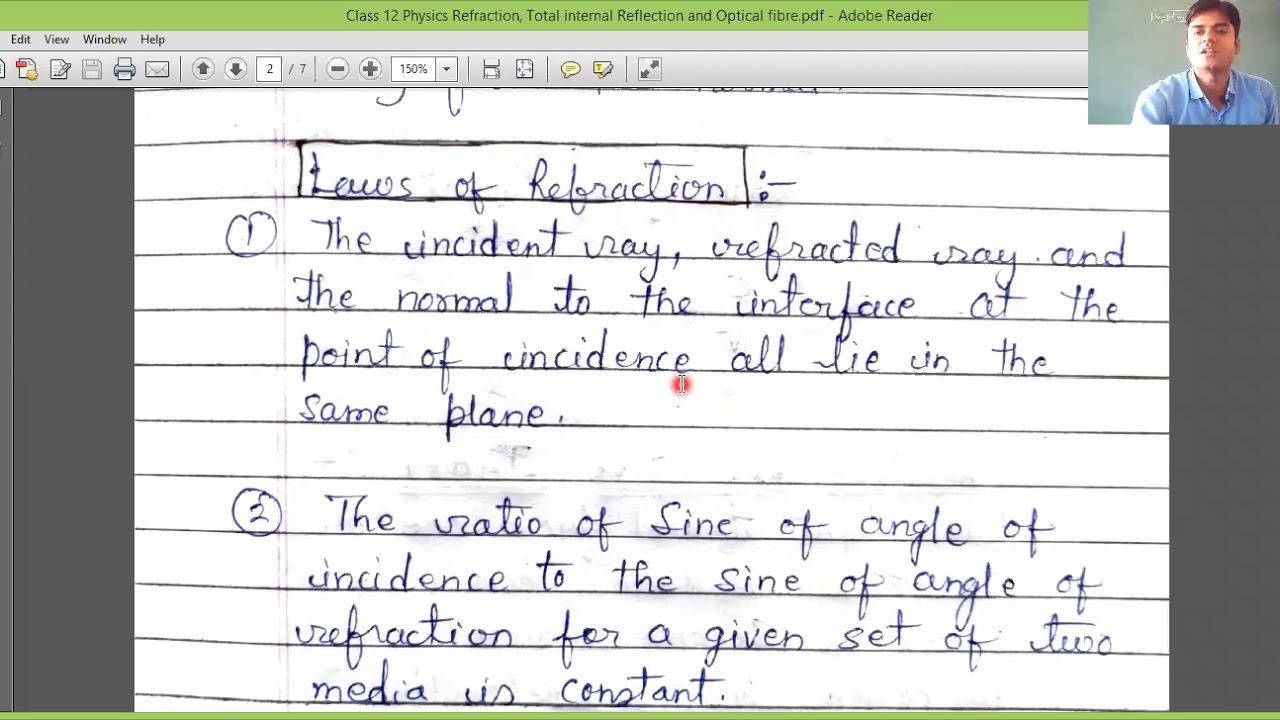 Class 12 Physics Refraction, Total internal Reflection and Optical fibre.pdf - Adobe Reader
Edit View Window Help
2 / 7 150%
Laws of Refraction :-
① The incident ray, refracted ray and
the normal to the interface at the
point of incidence all lie in the
same plane.
② The ratio of Sine of angle of
incidence to the sine of angle of
refraction for a given set of two
media is constant.